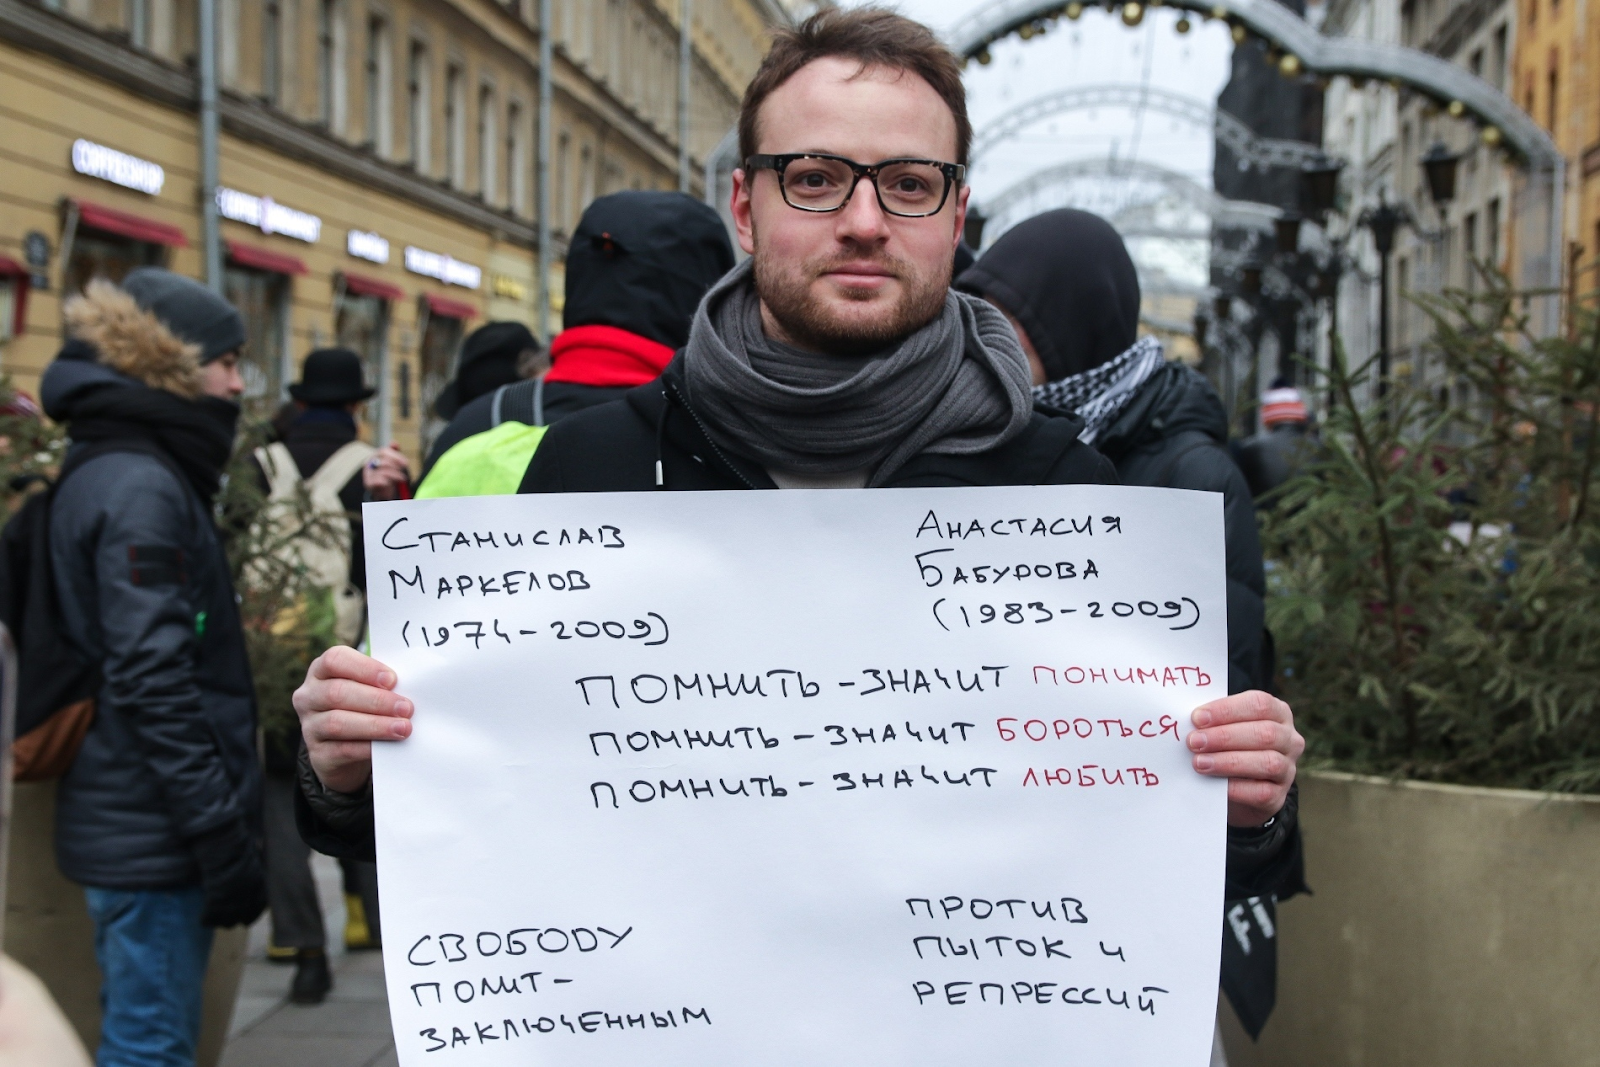 COFFEESHOP
Станислав
Маркелов
(1974-2009)
Анастасия
Бабурова
(1983-2009)
ПОМНИТЬ - ЗНАЧИТ ПОНИМАТЬ
ПОМНИТЬ - ЗНАЧИТ БОРОТЬСЯ
ПОМНИТЬ - ЗНАЧИТ ЛЮБИТЬ
СВОБОДУ
ПОЛИТ-
ЗАКЛЮЧЕННЫМ
ПРОТИВ
ПЫТОК И
РЕПРЕССИЙ